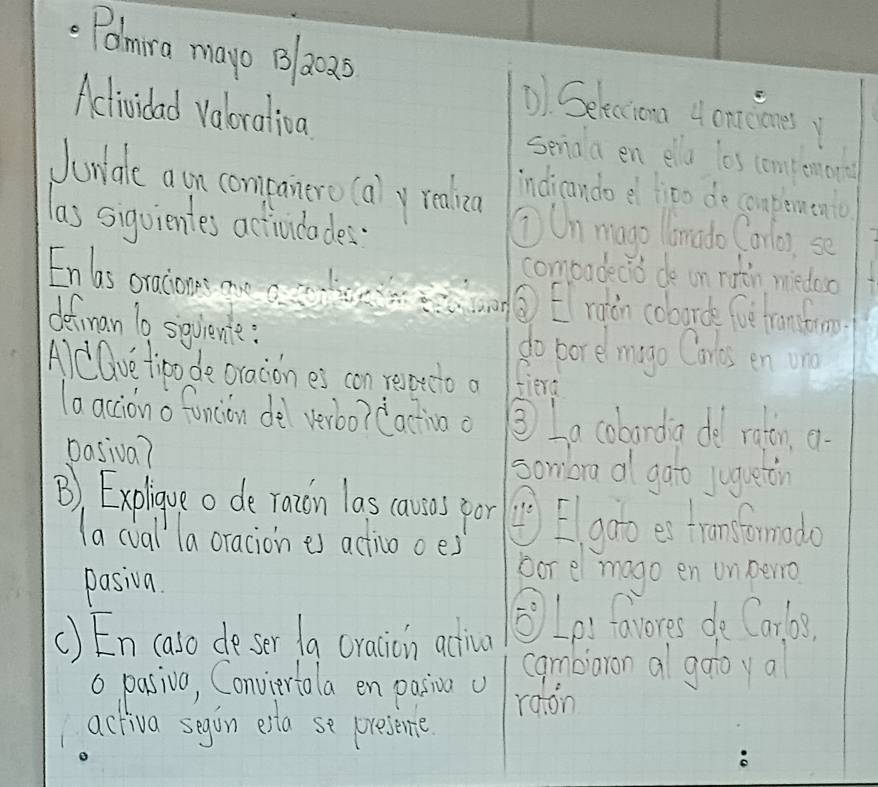 Palmira mayo 13/2025
Actividad Valorativa
Juntate a un compañero (a) y realiza
las siguientes actividades:
En las oraciones que a continuación
definan lo siguiente:
A) ¿Qué tipo de oración es con respecto a
la acción o función del verbo? ¿activa o
pasiva?
B) Explique o de razón las causas por
la cual la oración es activa o es
pasiva.
c) En caso de ser la oración activa
o pasiva, Conviertala en pasiva u
activa según esta se presente.
D). Selecciona 4 oraciones y
señala en ella los complementos
indicando el tipo de complemento
① Un mago llamado Carlos, se
compadeció de un ratón miedoso
② El ratón cobarde fué transforma-
do por el mago Carlos en una
fiera
③ La cobardía del ratón, a-
sombra al gato juguetón
④ El gato es transformado
por el mago en un perro
⑤ Los favores de Carlos,
cambiaron al gato y al
ratón